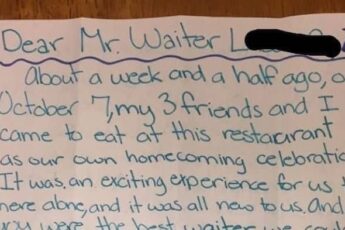 Dear Mr. Waiter L
About a week and a half ago, o
October 7, my 3 friends and I
came to eat at this restaurant
as our own homecoming celebratio
It was an exciting experience for us
here alone, and it was all new to us. And
you were the best waiter we coul